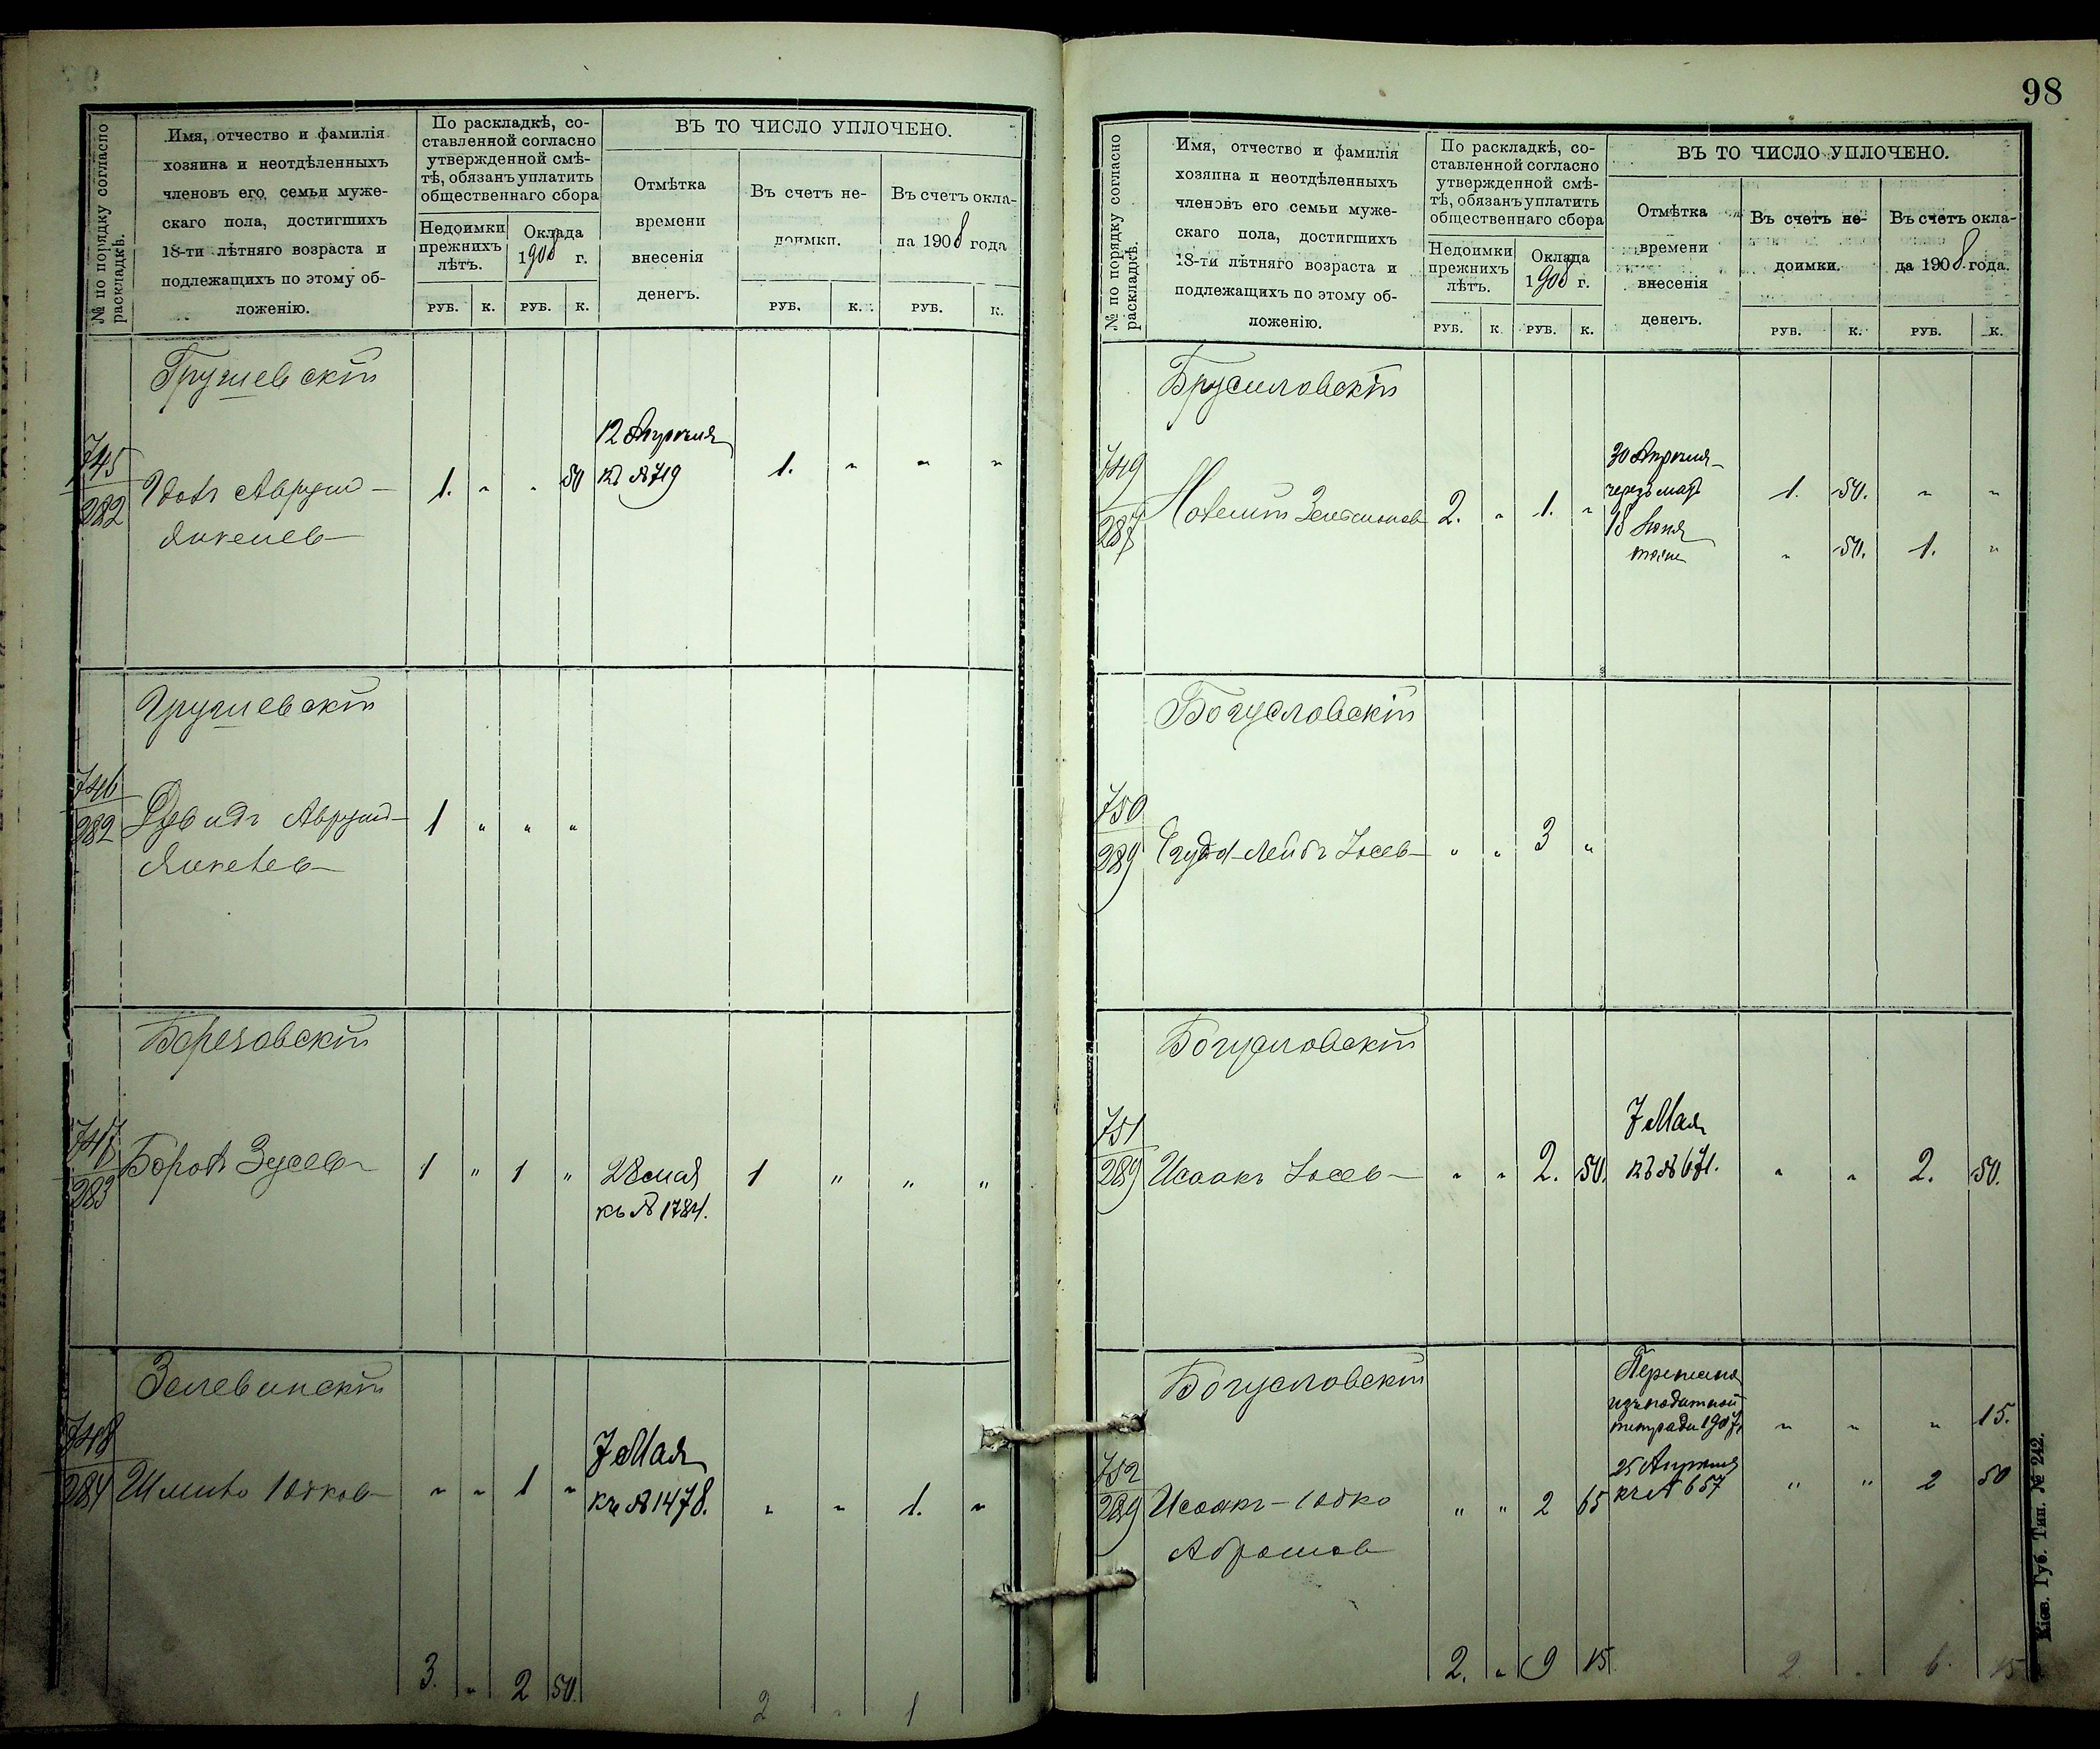 № по порядку согласно раскладкѣ.
Имя, отчество и фамилія
хозяина и неотдѣленныхъ
членовъ его семьи муже-
скаго пола, достигшихъ
18-ти лѣтняго возраста и
подлежащихъ по этому об-
ложенію.
По раскладкѣ, со-
ставленной согласно
утвержденной смѣ-
тѣ, обязанъ уплатить
общественнаго сбора
Недоимки
прежнихъ
лѣтъ.
Оклада
1908 г.
РУБ. К. РУБ. К.
ВЪ ТО ЧИСЛО УПЛОЧЕНО.
Отмѣтка
времени
внесенія
денегъ.
Въ счетъ не-
доимки.
Въ счетъ окла-
да 1908 года
РУБ. К. РУБ. К.
Грушевскій
745
282
12 Апреля
Аврум- 1. " " 50 къ № 719 1. " " "
Янкелев
Грушевскій
746
282
Давидъ Аврум- 1 " " "
Янкелев
Березовскій
747
283
Борохъ Зусев 1 " 1 " 28 мая 1 " " "
къ № 1784.
Зелевинскій
748
284
7 Мая
Шлиомо Юдков " " 1 " къ № 1478. " " 1. "
3. " 2 50. 2 " 1
98
№ по порядку согласно раскладкѣ.
Имя, отчество и фамилія
хозяина и неотдѣленныхъ
членовъ его семьи муже-
скаго пола, достигшихъ
18-ти лѣтняго возраста и
подлежащихъ по этому об-
ложенію.
По раскладкѣ, со-
ставленной согласно
утвержденной смѣ-
тѣ, обязанъ уплатить
общественнаго сбора
Недоимки
прежнихъ
лѣтъ.
Оклада
1908 г.
РУБ. К. РУБ. К.
ВЪ ТО ЧИСЛО УПЛОЧЕНО.
Отмѣтка
времени
внесенія
денегъ.
Въ счетъ не-
доимки.
Въ счетъ окла-
да 1908 года.
РУБ. К. РУБ. К.
Брусиловскій
749
287
30 Апреля
1. 50. " "
2. " 1. "
18 Іюня
" 50. 1. "
Богуславскій
750
289
Лейбъ Іосев " " 3 "
Богуславскій
751
289
7 Мая
Исаакъ Іосев " " 2. 50. къ № 671. " " 2. 50.
Богуславскій
752
289
изъ податной
тетради 1907 " " " 15.
25 Апреля
Исаакъ-Юдко " " 2 65 къ № 657 " " 2 50
Абрамов
2. " 9 15 2. " 6. 15
Кіев. Губ. Тип. № 242.